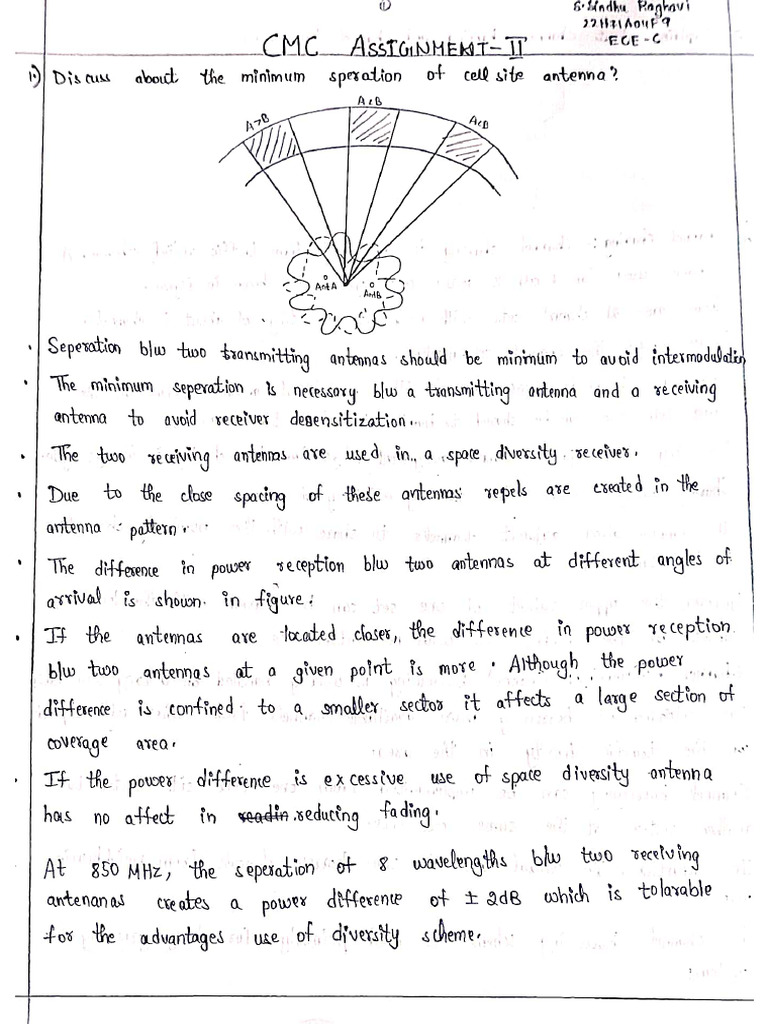 ①
S. Sindhu Raghavi
ECE-C
CMC ASSIGNMENT-II
1.) Discuss about the minimum speration of cell site antenna?
A>B
A<B
A<B
Ant A
Ant B
. Seperation b/w two transmitting antennas should be minimum to avoid intermodulation
. The minimum seperation is necessary b/w a transmitting antenna and a receiving
antenna to avoid receiver desensitization.
. The two receiving antennas are used in a space diversity receiver.
. Due to the close spacing of these antennas repels are created in the
antenna pattern.
. The difference in power reception b/w two antennas at different angles of
arrival is shown in figure:
. If the antennas are located closer, the difference in power reception
b/w two antennas at a given point is more. Although the power
difference is confined to a smaller sector it affects a large section of
coverage area.
. If the power difference is excessive use of space diversity antenna
has no affect in readin reducing fading.
At 850 MHz, the seperation of 8 wavelengths b/w two receiving
antenanas creates a power difference of ± 2dB which is tolarable
for the advantages use of diversity scheme.